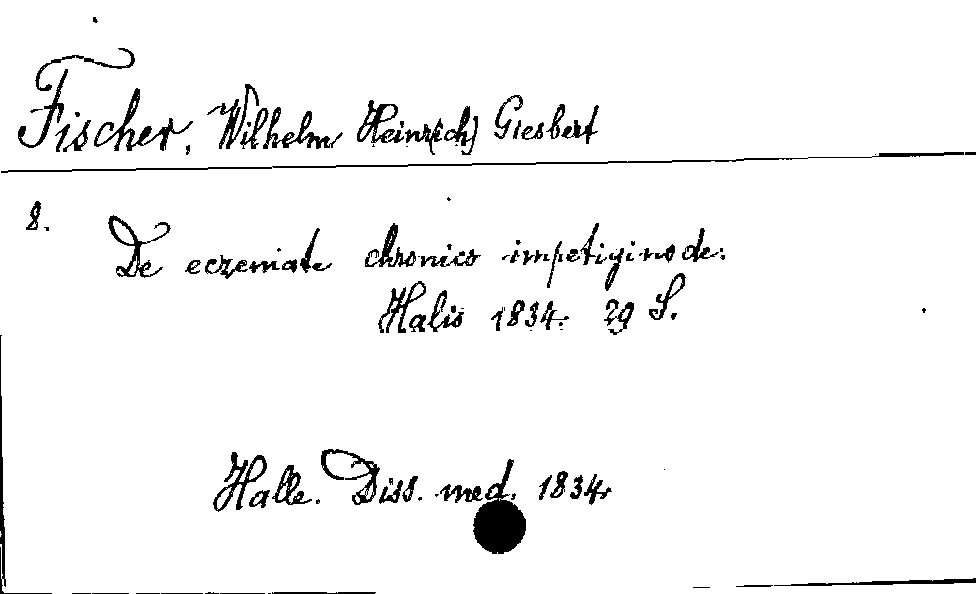 Fischer, Wilhelm Heinr(ich) Giesbert
8. De eczemate chronico impetiginode.
Halis 1834. 29 S.
Halle. Diss. med. 1834.